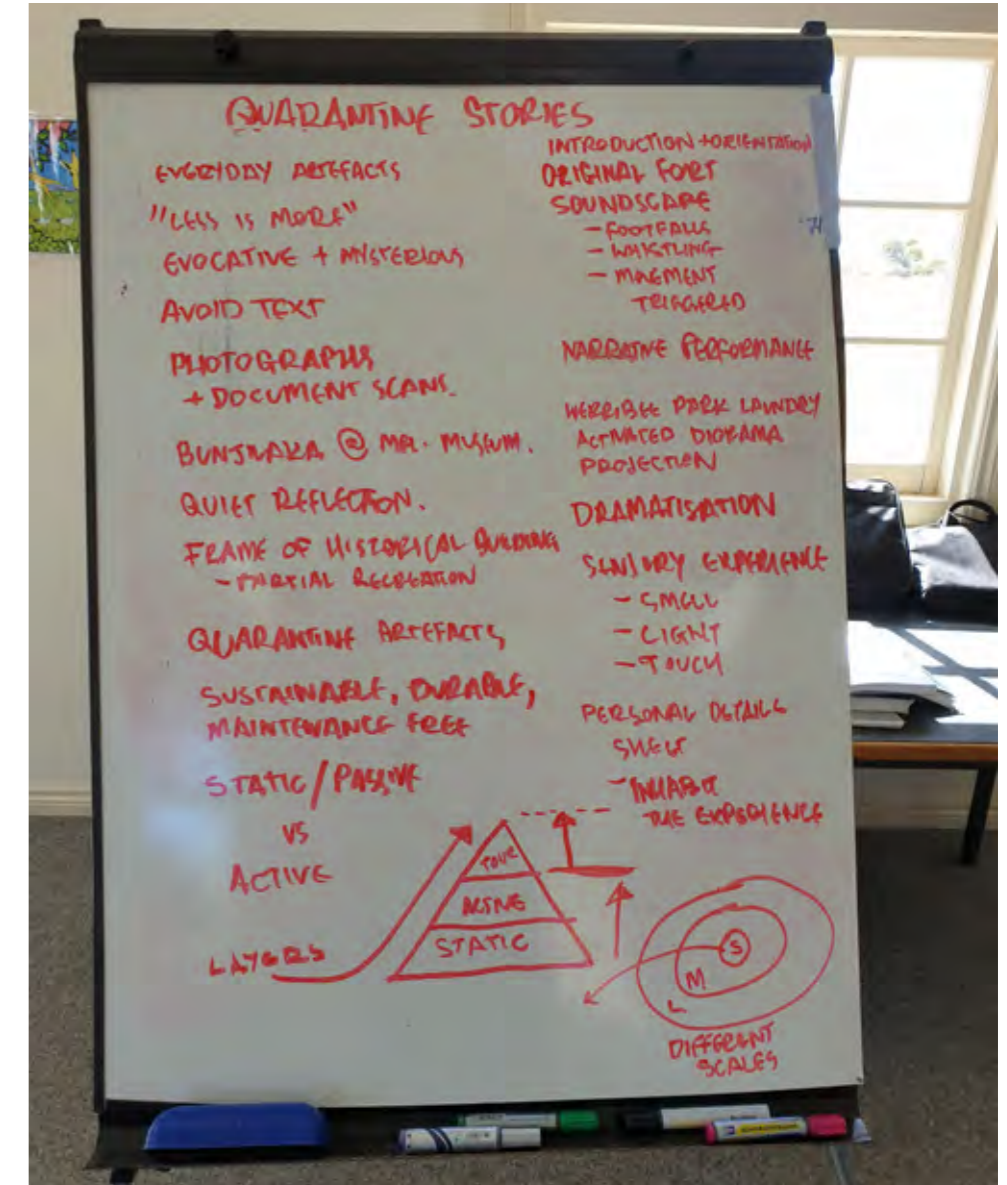 QUARANTINE STORIES
EVERYDAY ARTEFACTS
"LESS IS MORE"
EVOCATIVE + MYSTERIOUS
AVOID TEXT
PHOTOGRAPHS
+ DOCUMENT SCANS.
BUNJILAKA @ MEL. MUSEUM.
QUIET REFLECTION.
FRAME OF HISTORICAL BUILDING
- PARTIAL RECREATION
QUARANTINE ARTEFACTS
SUSTAINABLE, DURABLE,
MAINTENANCE FREE
STATIC/PASSIVE
VS
ACTIVE
LAYERS
INTRODUCTION + ORIENTATION
ORIGINAL FORT
SOUNDSCAPE
- FOOTFALLS
- WHISTLING
- MOVEMENT
TRIGGERED
NARRATIVE PERFORMANCE
WERRIBEE PARK LAUNDRY
ACTIVATED DIORAMA
PROJECTION
DRAMATISATION
SENSORY EXPERIENCE
- SMELL
- LIGHT
- TOUCH
PERSONAL DETAILS
- INHABIT
THE EXPERIENCE
TOUR
ACTIVE
STATIC
S
M
L
DIFFERENT
SCALES